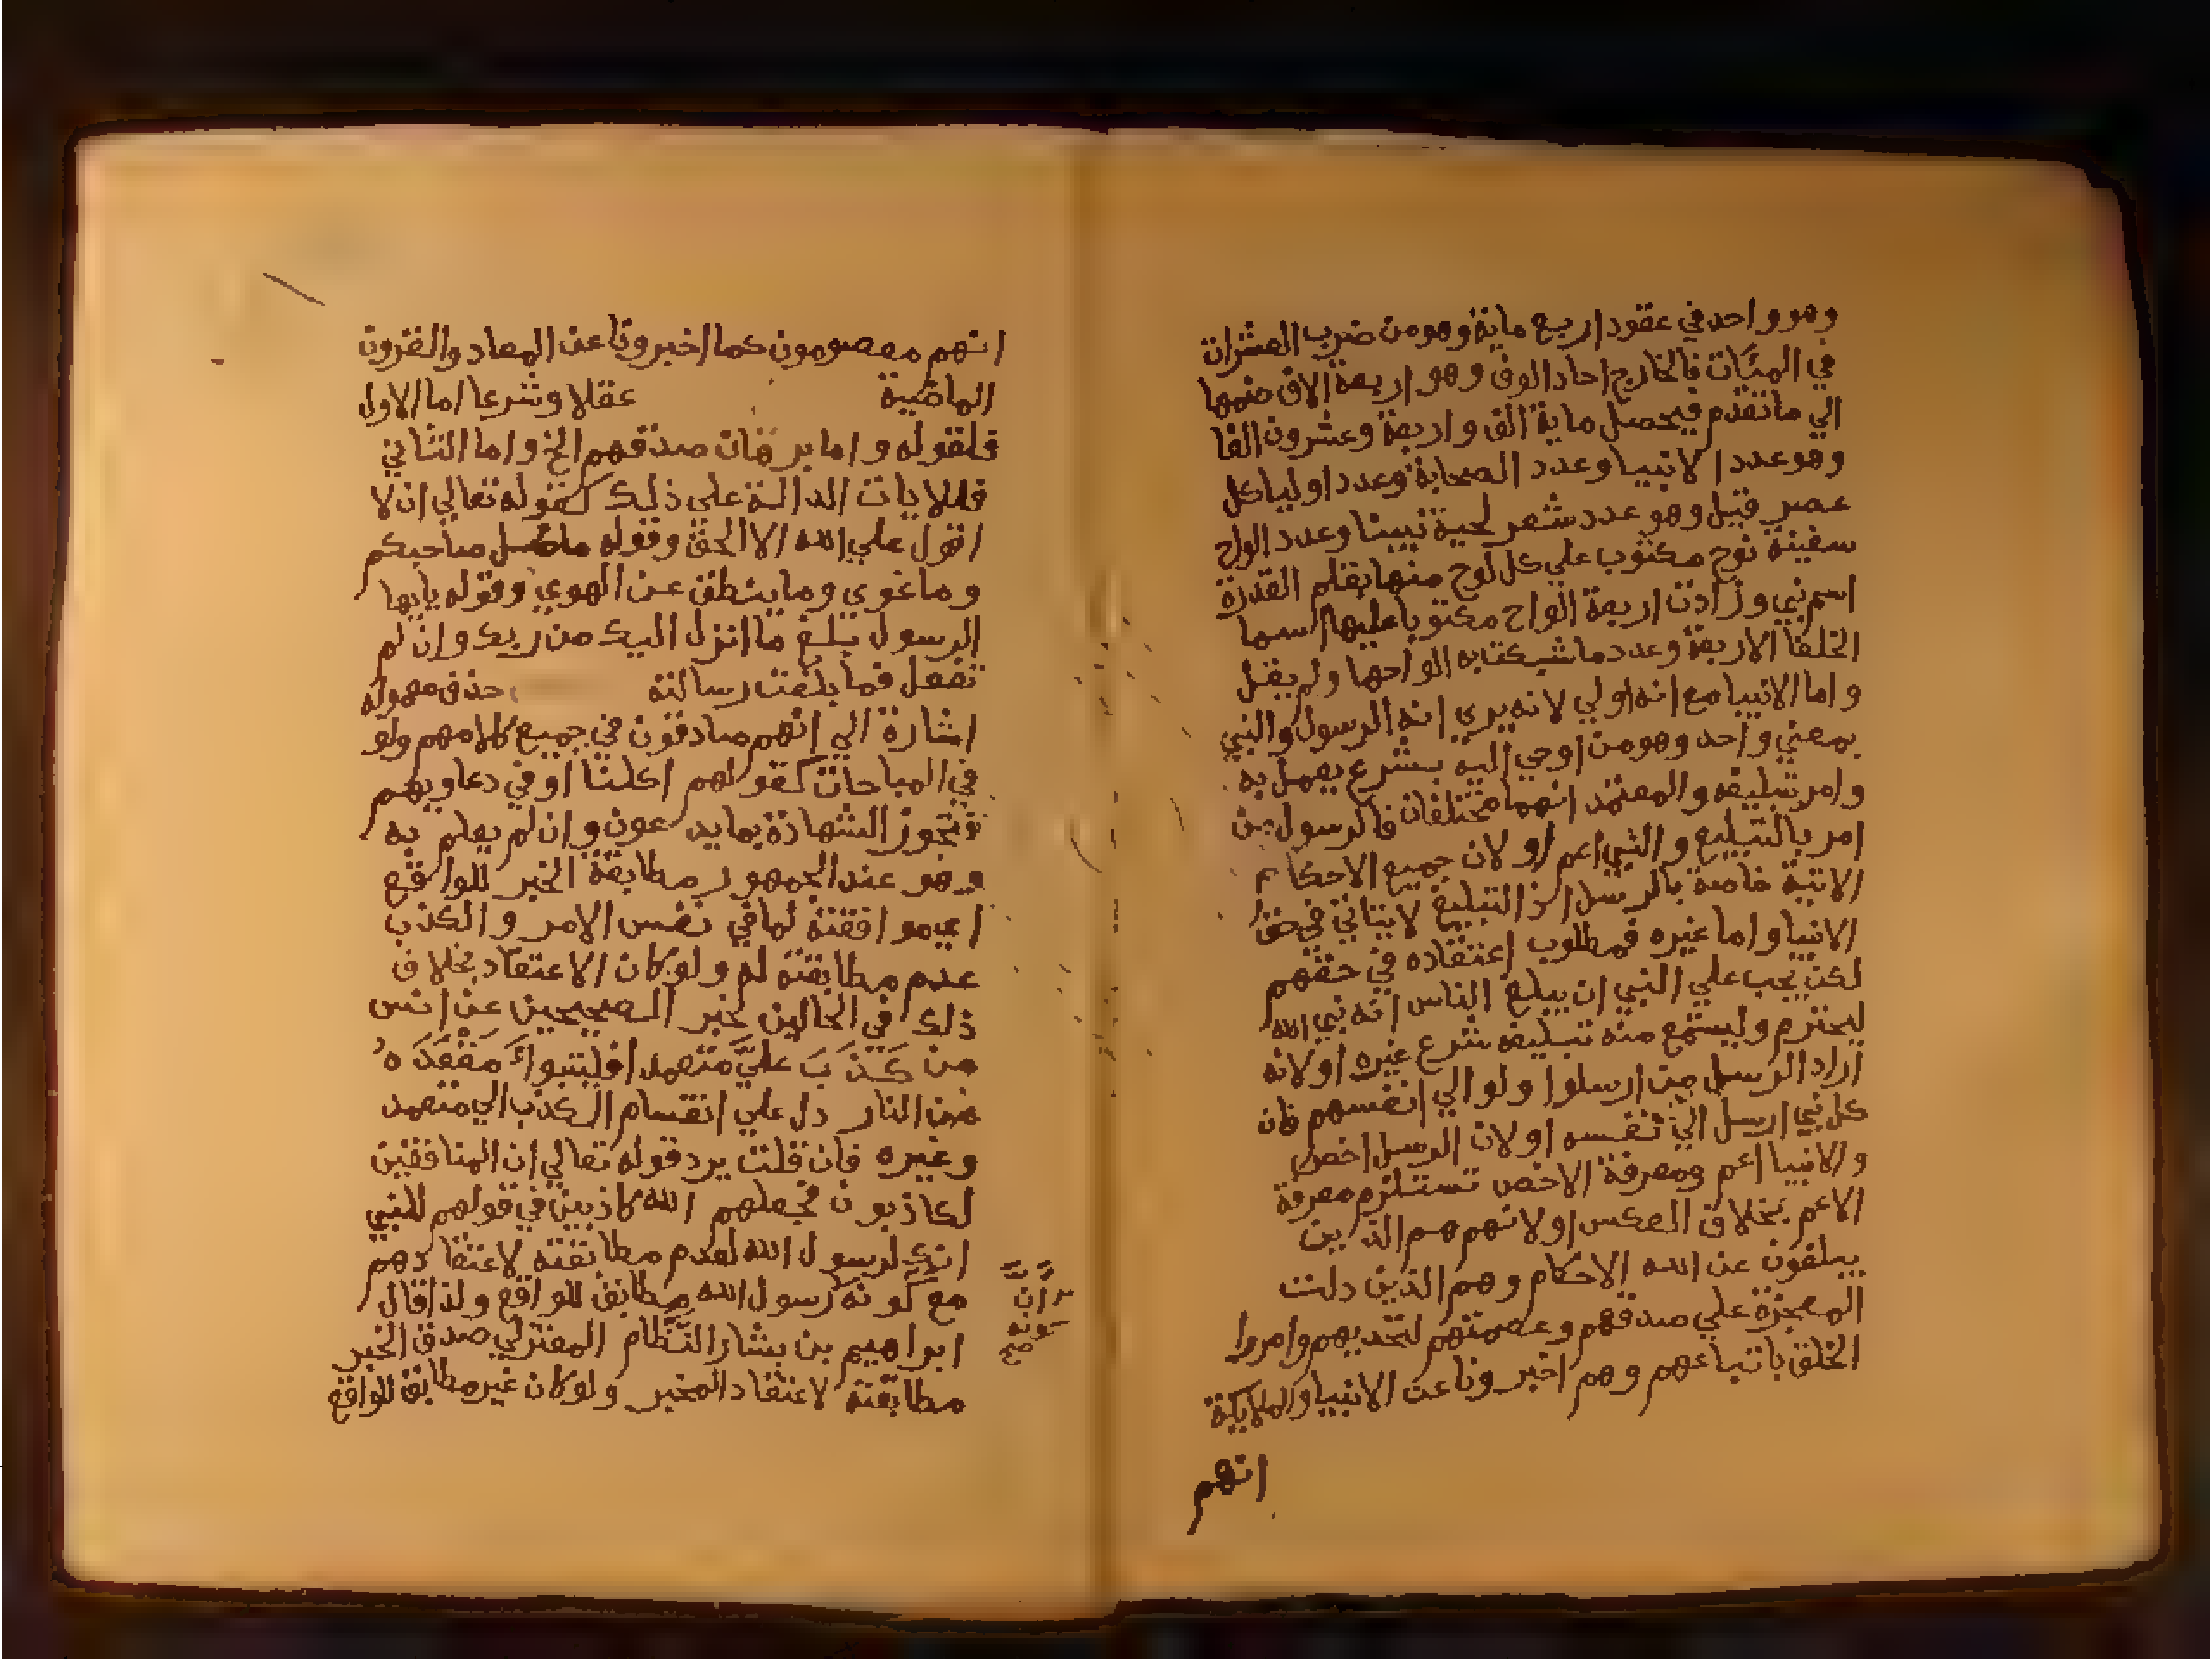 وهو واحد في عقود اربع ماية وهو من ضرب العشرات
في المئات فالخارج احاد الوف وهو اربعة الاف ضمها
الي ما تقدم فيحصل ماية الف واربعة وعشرون الفا
وهو عدد الانبيا وعدد الصحابة وعدد اوليا كل
عصر قيل وهو عدد شعر لحية نبينا وعدد الواح
سفينة نوح مكتوب علي كل لوح منها بقلم القدرة
اسم نبي وزادت اربعة الواح مكتوبا عليها اسما
الخلفا الاربعة وعدد ما شبكتابه الواحها ولم يقل
واما الانبيا مع انه اولي لانه يري انه الرسول والنبي
بمعني واحد وهو من اوحي اليه بشرع يعمل به
وامر بتبليغه والمعتمد انهما مختلفان فالرسول من
امر بالتبليغ والنبي اعم او لان جميع الاحكام
الاتية خاصة بالرسل اذ التبليغ لايتاتي في حق
الانبيا واما غيره فمطلوب اعتقاده في حقهم
لكن يجب علي النبي ان يبلغ الناس انه نبي الله
ليحترم وليستمع منه تبليغه شرع غيره او لانه
اراد الرسل من ارسلوا ولو الي انفسهم فان
كل نبي ارسل الي نفسه او لان الرسل اخص
والانبيا اعم ومعرفة الاخص تستلزم معرفة
الاعم بخلاف العكس او لانهم هم الذين
يبلغون عن الله الاحكام وهم الذين دلت
المعجزة علي صدقهم وعصمتهم لتحديهم وامروا
الخلق باتباعهم وهم اخبرونا عن الانبيا والملايكة
انهم
انهم معصومون كما اخبرونا عن المعاد والقرون
الماضية عقلا وشرعا اما الاول
فلقوله واما برهان صدقهم الخ واما الثاني
فللايات الدالة علي ذلك كقوله تعالي ان لا
اقول علي الله الا الحق وقوله ماضل صاحبكم
وما غوي وما ينطق عن الهوي وقوله يايها
الرسول بلغ ما انزل اليك من ربك وان لم
تفعل فما بلغت رسالته حذف معموله
اشارة الي انهم صادقون في جميع كلامهم ولو
في المباحات كقولهم اكلنا او في دعاويهم
فتجوز الشهادة بما يدعون وان لم يعلم به
وهو عند الجمهور مطابقة الخبر للواقع
اي موافقته لما في نفس الامر والكذب
عدم مطابقته له ولو كان الاعتقاد بخلاف
ذلك في الحالين لخبر الصحيحين عن انس
من كَذَبَ عليَّ متعمدا فليتبوأ مَقْعَدَهُ
من النار دل علي انقسام الكذب الي متعمد
وغيره فان قلت يرد قوله تعالي ان المنافقين
لكاذبون فجعلهم الله كاذبين في قولهم للنبي
انك لرسول الله لعدم مطابقته لاعتقادهم
مع كونه رسول الله مطابق للواقع ولذا قال
ابراهيم بن بشار النظام المعتزلي صدق الخبر
مطابقته لاعتقاد المخبر ولو كان غير مطابق للواقع